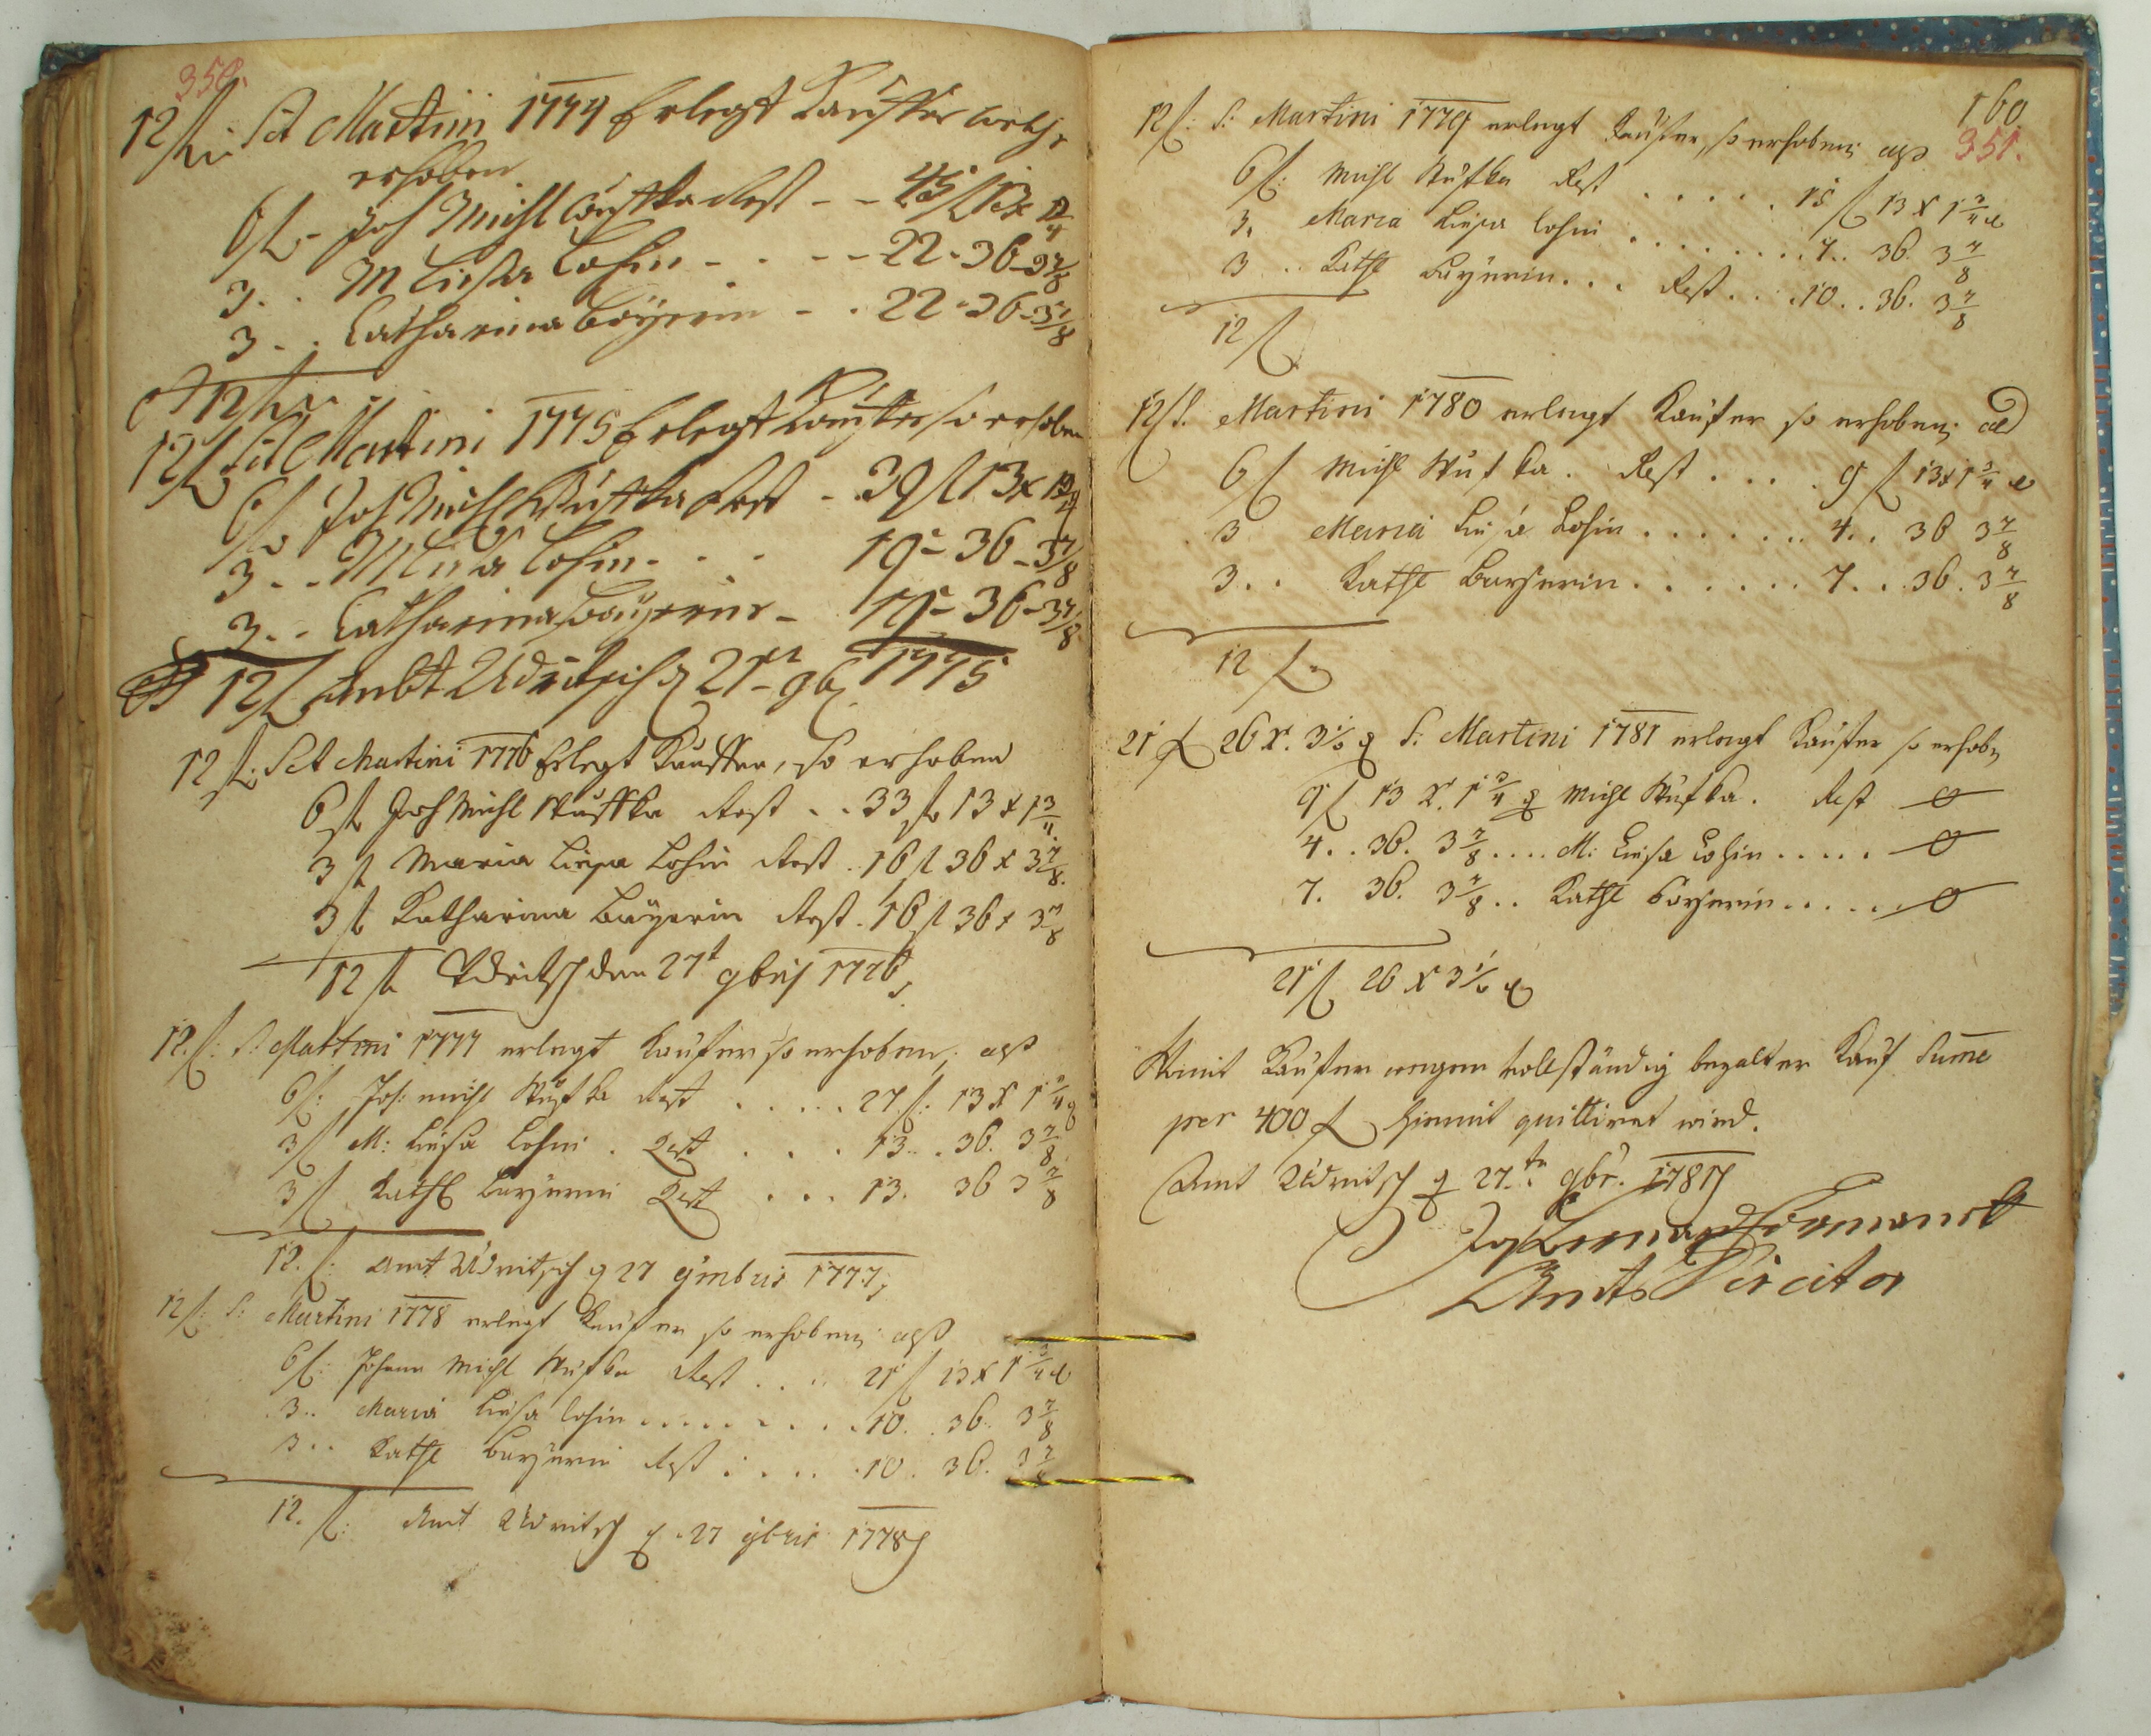 350.
12 fl: Sct Martini 1774 Erlegt Kauffer welche
erhoben
6 fl - Joh Michl Wustka Rest - - 45 fl 13 x 1 3/4
3 . . M Liesa Losin - . - - 22 - 36 - 3 7/8
3 . . Catharina Bayerin - . 22 - 36 - 3 7/8
12 fl
12 fl Sct Martini 1775 Erlegt Kauffer so erhoben
6 fl Joh Michl Wustka Rest - 39 fl 13 x 1 3/4
3 . . M Liesa Losin - . . 19 - 36 - 3 7/8
3 . . Catharina Bayerin - 19 - 36 - 3 7/8
12 fl Ambt Udritsch d 21 t 9b 1775
12 fl: Sct Martini 1776 Erlegt Kauffer, so erhoben
6 fl Joh Michl Wustka Rest . . 33 fl 13 x 1 3/4
3 fl Maria Liesa Losin Rest . 16 fl 36 x 3 7/8.
3 fl Katharina Bayerin Rest . 16 fl 36 x 3 7/8
12 fl Udritsch den 27t 9bris 1776
12. fl: S: Martini 1777 erlegt Kaufer so erhoben; alß
6 fl: Joh: Michl Wustka Rest . . . . . 27 fl: 13 x 1 3/4 d
3 fl M: Liesa Losin . Rest . . . . 13 . . 36. 3 7/8
3 fl Kathl Bayerin Rest . . . 13. 36 3 7/8
12. fl: Amt Udritsch d 27 9mbris 1777
12 fl: S: Martini 1778 erlegt Kaufer so erhoben; alß
6 fl: Johann Michl Wustka Rest . . . 21 fl 13 x 1 3/4 d
3 . . Maria Liesa Losin . . . . . . . . 10 . . 36. 3 7/8
3 . . Kathl Bayerin Rest . . . . . 10 . 36. 3 7/8
12. fl: Amt Udritsch d. 27 9bris 1778
160
351.
12 fl: S: Martini 1779 erlegt Kaufer, so erhoben; alß
6 fl: Michl Wustka Rest . . . . . . 15 fl 13 x 1 3/4 d
3. Maria Liesa Losin . . . . . . . . 7 . . 36. 3 7/8
3 . . Kathl Bayerin . . . Rest . . . 10 . . 36. 3 7/8
12 fl
12 fl S. Martini 1780 erlegt Kaufer so erhoben; als
6 fl Michl Wustka . Rest . . . . 9 fl 13 x 1 3/4 d
3 Maria Liesa Losin . . . . . . . 4 . . 36 3 7/8
3 . . Kathl Bayerin . . . . . . 7 . . 36. 3 7/8
12 fl
21 fl 26 x. 3 1/2 d S: Martini 1781 erlegt Kaufer so erhoben
9 fl 13 x. 1 3/4 d Michl Wustka. Rest 0
4 . . 36. 3 7/8 . . . . M: Liesa Losin . . . . . 0
7. 36. 3 7/8 . . Kathl Bayerin . . . . . . 0
21 fl 26 x 3 1/2 d
Womit Kaufer wegen vollständig bezalter Kauf Sume
per 400 fl hiemit quittiret wird.
Amt Udritsch d 27.ten 9br. 1781
Amts Director